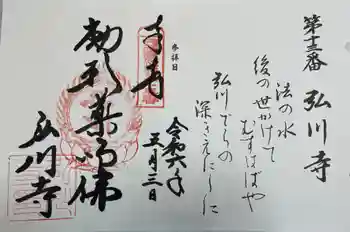 第十二番 弘川寺
法の水
後の世かけて
むすはばや
弘川でらの
深きえにしに
参拝日
令和六年
五月三日
奉拝
弘川寺